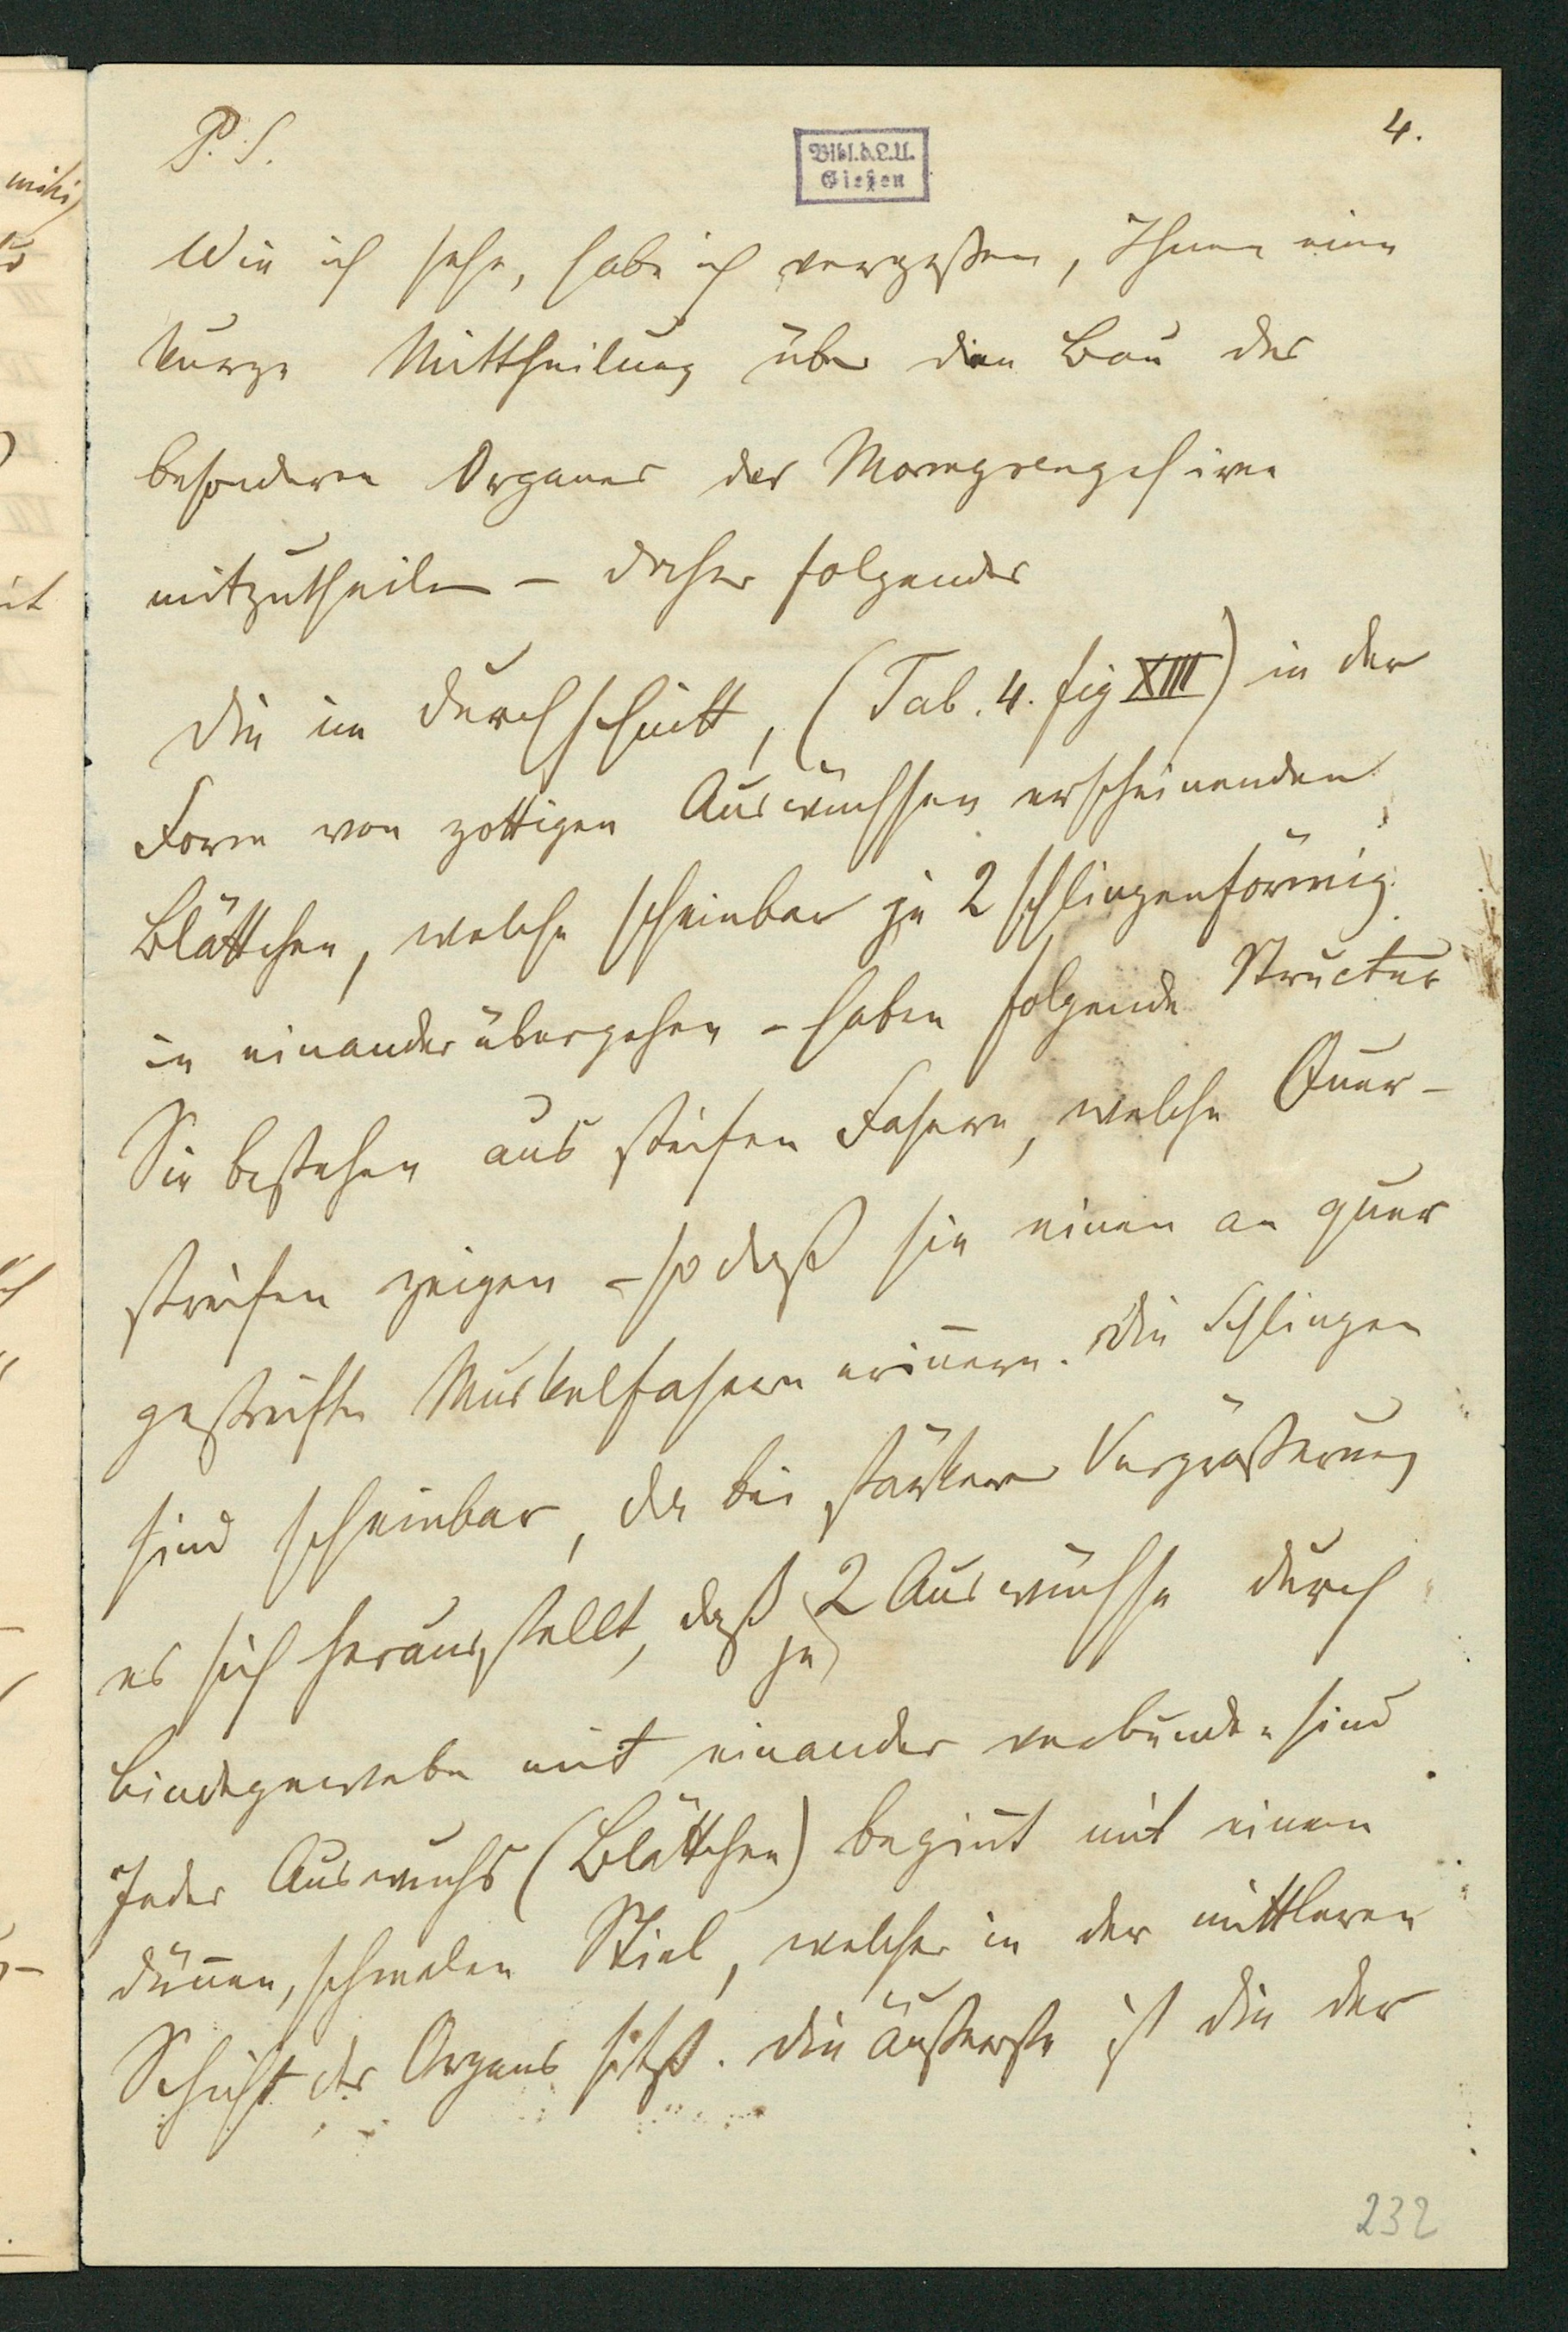 P. S.
4.
Bibl.d.L.U.
Gießen
Wie ich sehe, habe ich vergessen, Ihnen eine
kurze Mittheilung über den Bau des
besonderen Organes der
mitzutheilen – daher folgendes
Die im Durchschnitt, (Tab. 4. fig XIII) in der
Form von zottigen Auswüchsen erscheinenden
Blättchen, welche scheinbar je 2 schlingenförmig
in einander übergehen – haben folgende Structur
Sie bestehen aus steifen Fasern, welche Quer-
streifen zeigen – so daß sie einen an quer
gestreifte Muskelfasern erinnern. Die Schlingen
sind scheinbar, da bei starker Vergrößerung
es sich herausstellt, daß je 2 Auswüchse durch
Bindegewebe mit einander verbunden sind
Jeder Auswuchs (Blättchen) beginnt mit einem
dünnen, schmalen Stiel, welcher in der mittleren
Schicht des Organs sitzt. Die äußerste ist die der
232